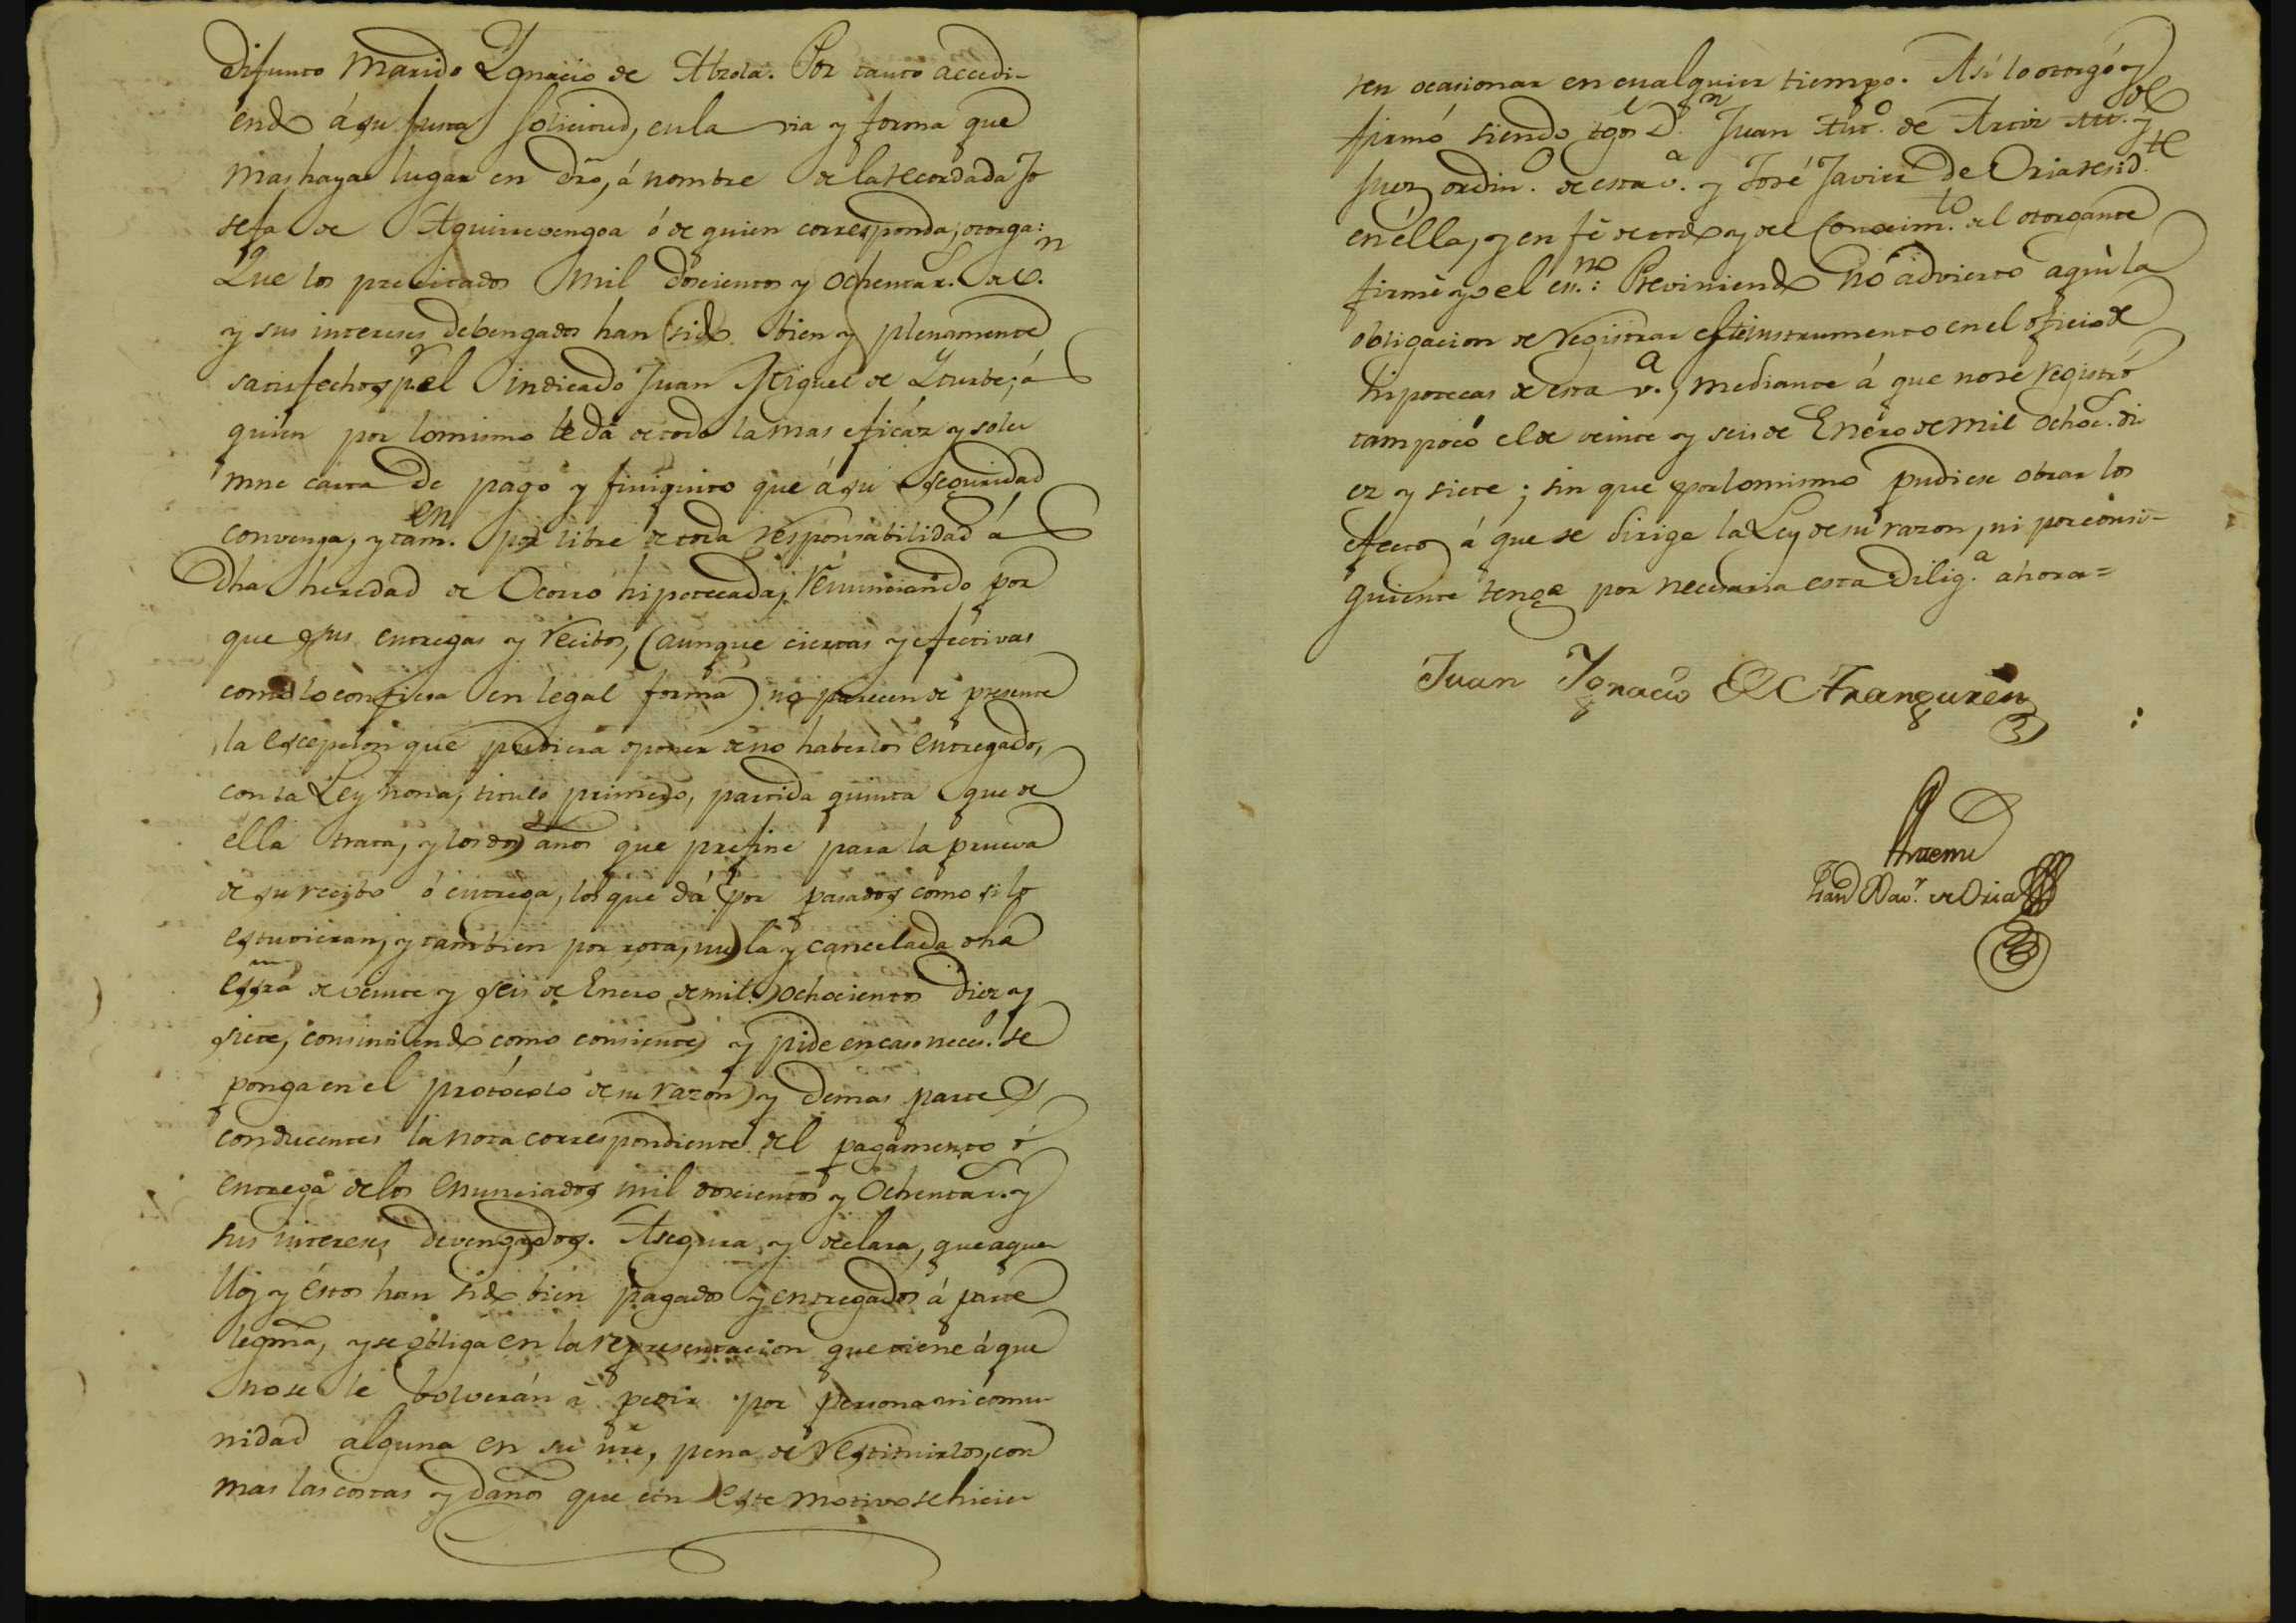 difunto Marido Ygnacio de Abrola. Por tanto accedi-
endo á su justa solicitud, en la via y forma que
mas haya lugar en dro, á nombre de la recordada Jo
sefa de Aguirrevengoa ó de quien corresponda, otorga:
Que los precitados mil doscientos y ochenta r.s de v.n
y sus intereses debengados han sido bien y plenamente
satisfechos p.r el indicado Juan Miguel de Yturbe, á
quien por lo mismo le dá de todo la mas eficáz y sole
mne carta de pago y finiquito que á su seguridad
convenga, y tam.en por libre de toda responsabilidad á
dha heredad de Ocorro hipotecada, renunciando por
que sus entregas y recibos, (aunque ciertas y efectivas
como lo confiesa en legal forma) no parecen de presente
la escepcion que pudiera oponer de no haberlos entregado,
con la Ley nona, titulo primero, partida quinta que de
ella trata, y los dos años que prefine para la prueva
de su recibo ó entrega, los que dá por pasados como si lo
estuvieran, y tambien por rota, nula y cancelada dha
essra de veinte y seis de Enero de mil ochocientos diez y
siete, consintiendo como consiente y pide en caso neces.o se
ponga en el protócolo de su razon y demas partes
conducentes la nota correspondiente del pagamento ó
entrega de los enunciados mil doscientos y ochenta r.s y
sus intereses devengados. Asegura y declara, que aque
llos y éstos han sido bien pagados y entregados á parte
legma, y se obliga en la representacion que tiene á que
no se le bolverán á pedir por persona ni comu
nidad alguna en su nre, pena de restituirlos, con
mas las costas y daños que con este motivo se hicie
sen ocasionar en cualquier tiempo. Así lo otorgó y
firmó siendo tgos D.n Juan Ant.o de Alc.e y
Juez ordin.o de esta v.a y José Javier de Oria resid.te
en élla, y en fé de todo y del Conocim.to del otorgante
firmé yo el es.no: Previniendo no advierto aquí la
obligacion de registrar este instrumento en el oficio de
hipotecas de esta v.a, mediante á que no se registró
tampoco el de veinte y seis de Enero de mil ochoc.s di
ez y siete; sin que por lo mismo pudiese obrar los
efectos á que se dirige la Ley de su razon, ni por consi-
guiente tenga por necesaria esta dilig.a ahora=
Juan Ygnacio de Aranguren
Antemi
Xav.r de Oria